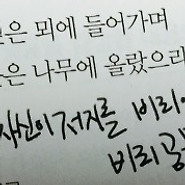 은 뫼에 들어가며
은 나무에 올랐으리
자신이 저지를 비리
비리